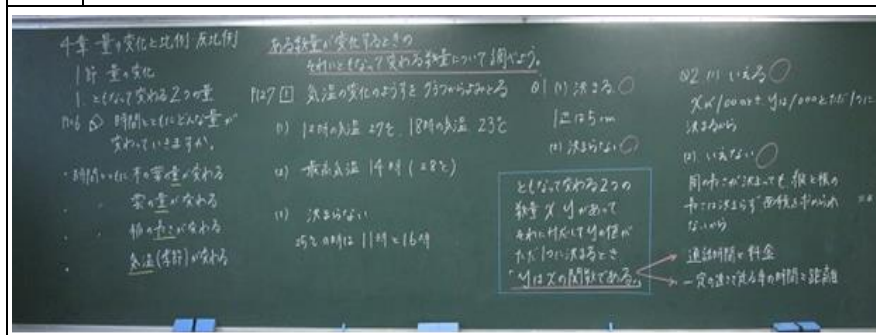 4章 量の変化と比例 反比例
1節 量の変化
1. ともなって変わる2つの量
P126 時間とともにどんな量が
変わっていきますか。
・時間とともに 木の葉の量が変わる
・ 〃 雲の量が変わる
・ 〃 影の長さが変わる
・ 気温(季節)が変わる
ある数量が変化するときの
それにともなって変わる数量について調べよう。
P127 1 気温の変化のようすをグラフからよみとる
(1) 12時の気温 27℃ 18時の気温 23℃
(2) 最高気温 14時 (28℃)
(3) 決まらない
25℃の時は 11時と16時
Q1 (1) 決まる
1辺は5cm
(2) 決まらない
ともなって変わる2つの
数量 x yがあって
それに対応してyの値が
ただ1つに決まるとき
「yはxの関数である。」
Q2 (1) いえる
xが1000のとき yは1000とただ1つに
決まるから
(2) いえない
周の長さが決まっても、縦と横の
長さは決まらず 面積も求められ
ないから
通話時間と料金
一定の速さで走る車の時間と距離